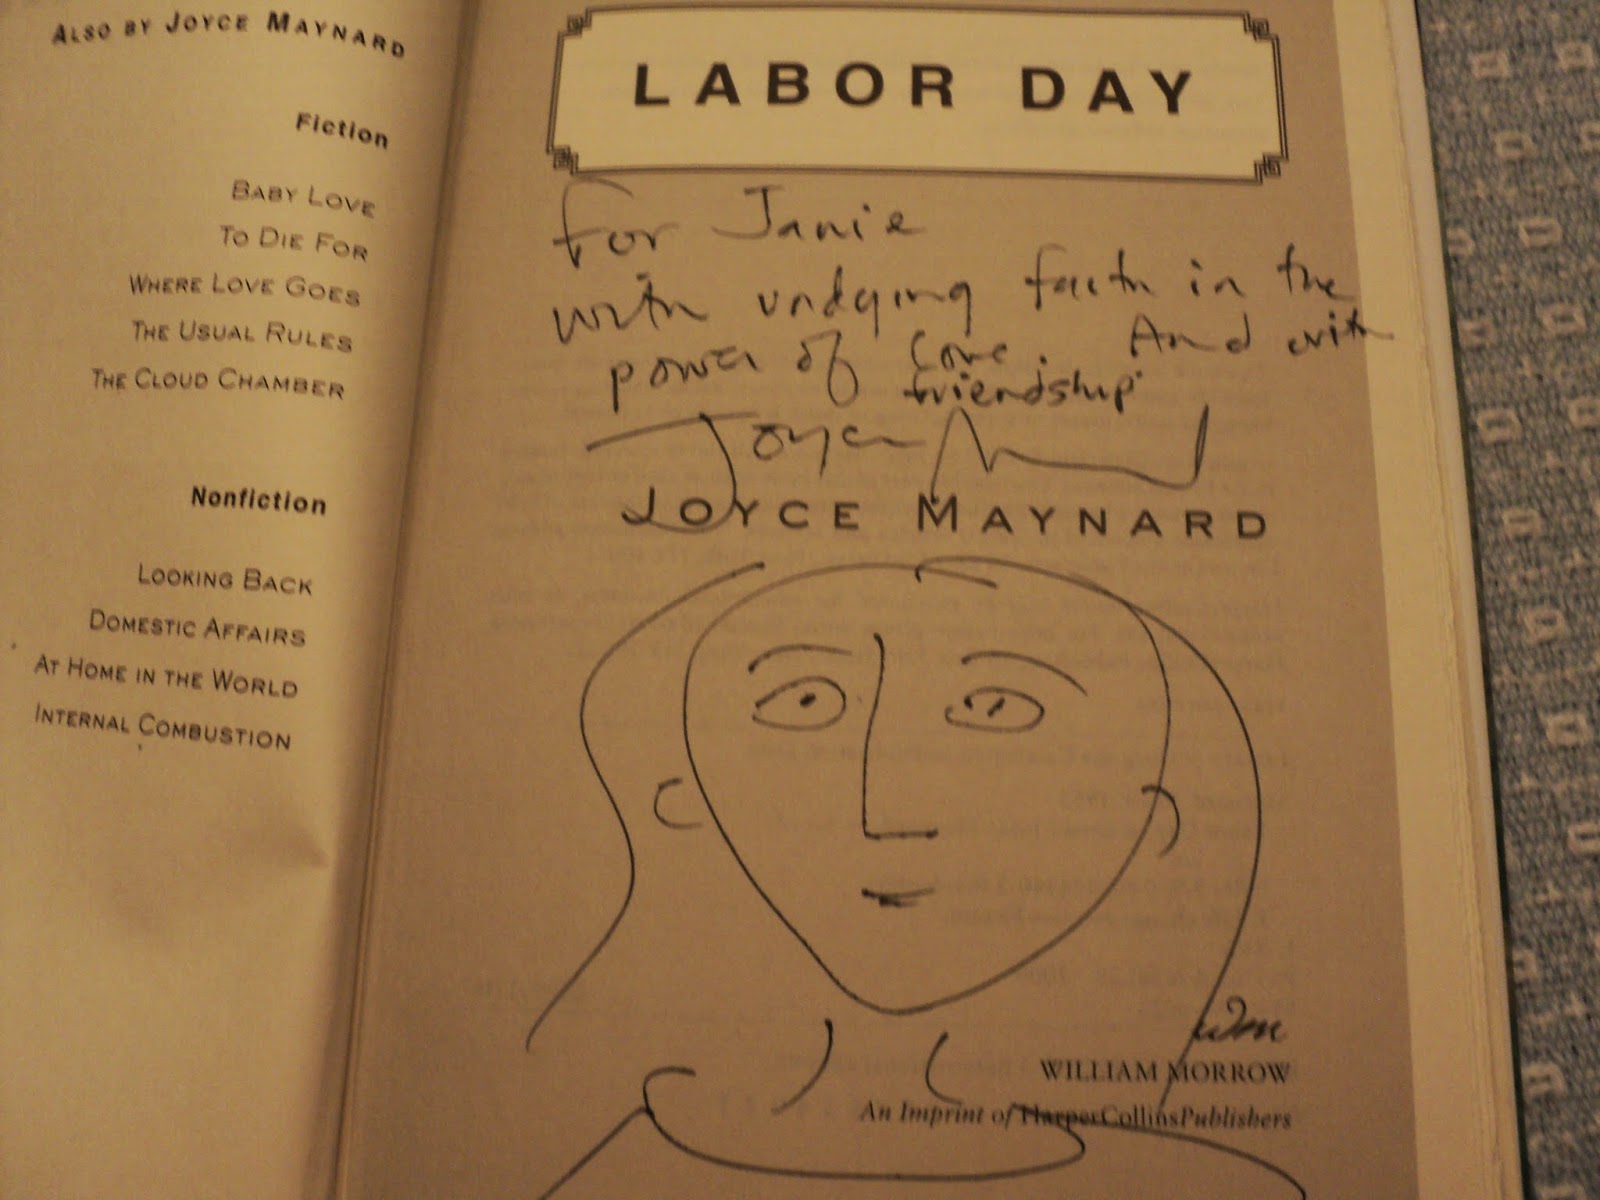 ALSO BY JOYCE MAYNARD
Fiction
BABY LOVE
TO DIE FOR
WHERE LOVE GOES
THE USUAL RULES
THE CLOUD CHAMBER
Nonfiction
LOOKING BACK
DOMESTIC AFFAIRS
AT HOME IN THE WORLD
INTERNAL COMBUSTION
LABOR DAY
For Janie
with undying faith in the
power of love. And with
friendship.
Joyce Maynard
JOYCE MAYNARD
Wm
WILLIAM MORROW
An Imprint of HarperCollinsPublishers